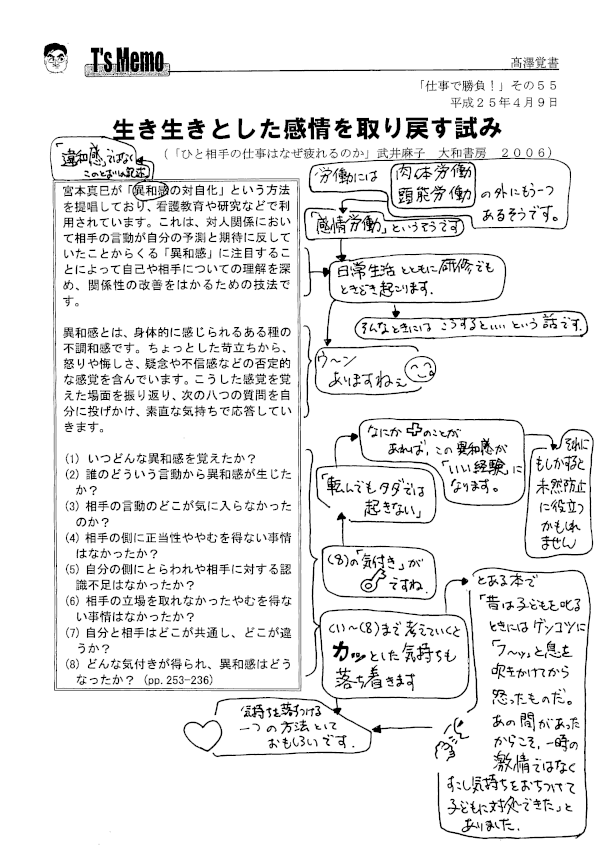 T's Memo
髙澤覚書
「仕事で勝負！」その５５
平成２５年４月９日
生き生きとした感情を取り戻す試み
（「ひと相手の仕事はなぜ疲れるのか」武井麻子　大和書房　２００６）
「違和感」ではなく
このとおりの記述
宮本真巳が「異和感の対自化」という方法
を提唱しており、看護教育や研究などで利
用されています。これは、対人関係におい
て相手の言動が自分の予測と期待に反して
いたことからくる「異和感」に注目するこ
とによって自己や相手についての理解を深
め、関係性の改善をはかるための技法で
す。
異和感とは、身体的に感じられるある種の
不調和感です。ちょっとした苛立ちから、
怒りや悔しさ、疑念や不信感などの否定的
な感覚を含んでいます。こうした感覚を覚
えた場面を振り返り、次の八つの質問を自
分に投げかけ、素直な気持ちで応答してい
きます。
(1) いつどんな異和感を覚えたか？
(2) 誰のどういう言動から異和感が生じた
か？
(3) 相手の言動のどこが気に入らなかった
のか？
(4) 相手の側に正当性ややむを得ない事情
はなかったか？
(5) 自分の側にとらわれや相手に対する認
識不足はなかったか？
(6) 相手の立場を取れなかったやむを得な
い事情はなかったか？
(7) 自分と相手はどこが共通し、どこが違
うか？
(8) どんな気付きが得られ、異和感はどう
なったか？ (pp.253-236)
労働には
肉体労働
頭脳労働
の外にもう一つ
あるそうです。
「感情労働」というそうです
日常生活とともに研修でも
ときどき起こります.
そんなときには こうするといいという話です.
ウ〜ン
ありますねぇ
なにか＋のことが
あれば、この異和感が
「いい経験」に
なります。
それに
もしかすると
未然防止
に役立つ
かもしれ
ません
「転んでもタダでは
起きない」
(8)の「気付き」が
ですね.
(1)〜(8)まで考えていくと
カッとした気持ちも
落ち着きます
気持ちを落ちつける
一つの方法として
おもしろいです.
とある本で
「昔は子どもを叱る
ときにはゲンコツに
「フ〜ッ」と息を
吹きかけてから
怒ったものだ。
あの間があった
からこそ、一時の
激情ではなく
すこし気持ちをおちつけて
子どもに対処できた」と
ありました.